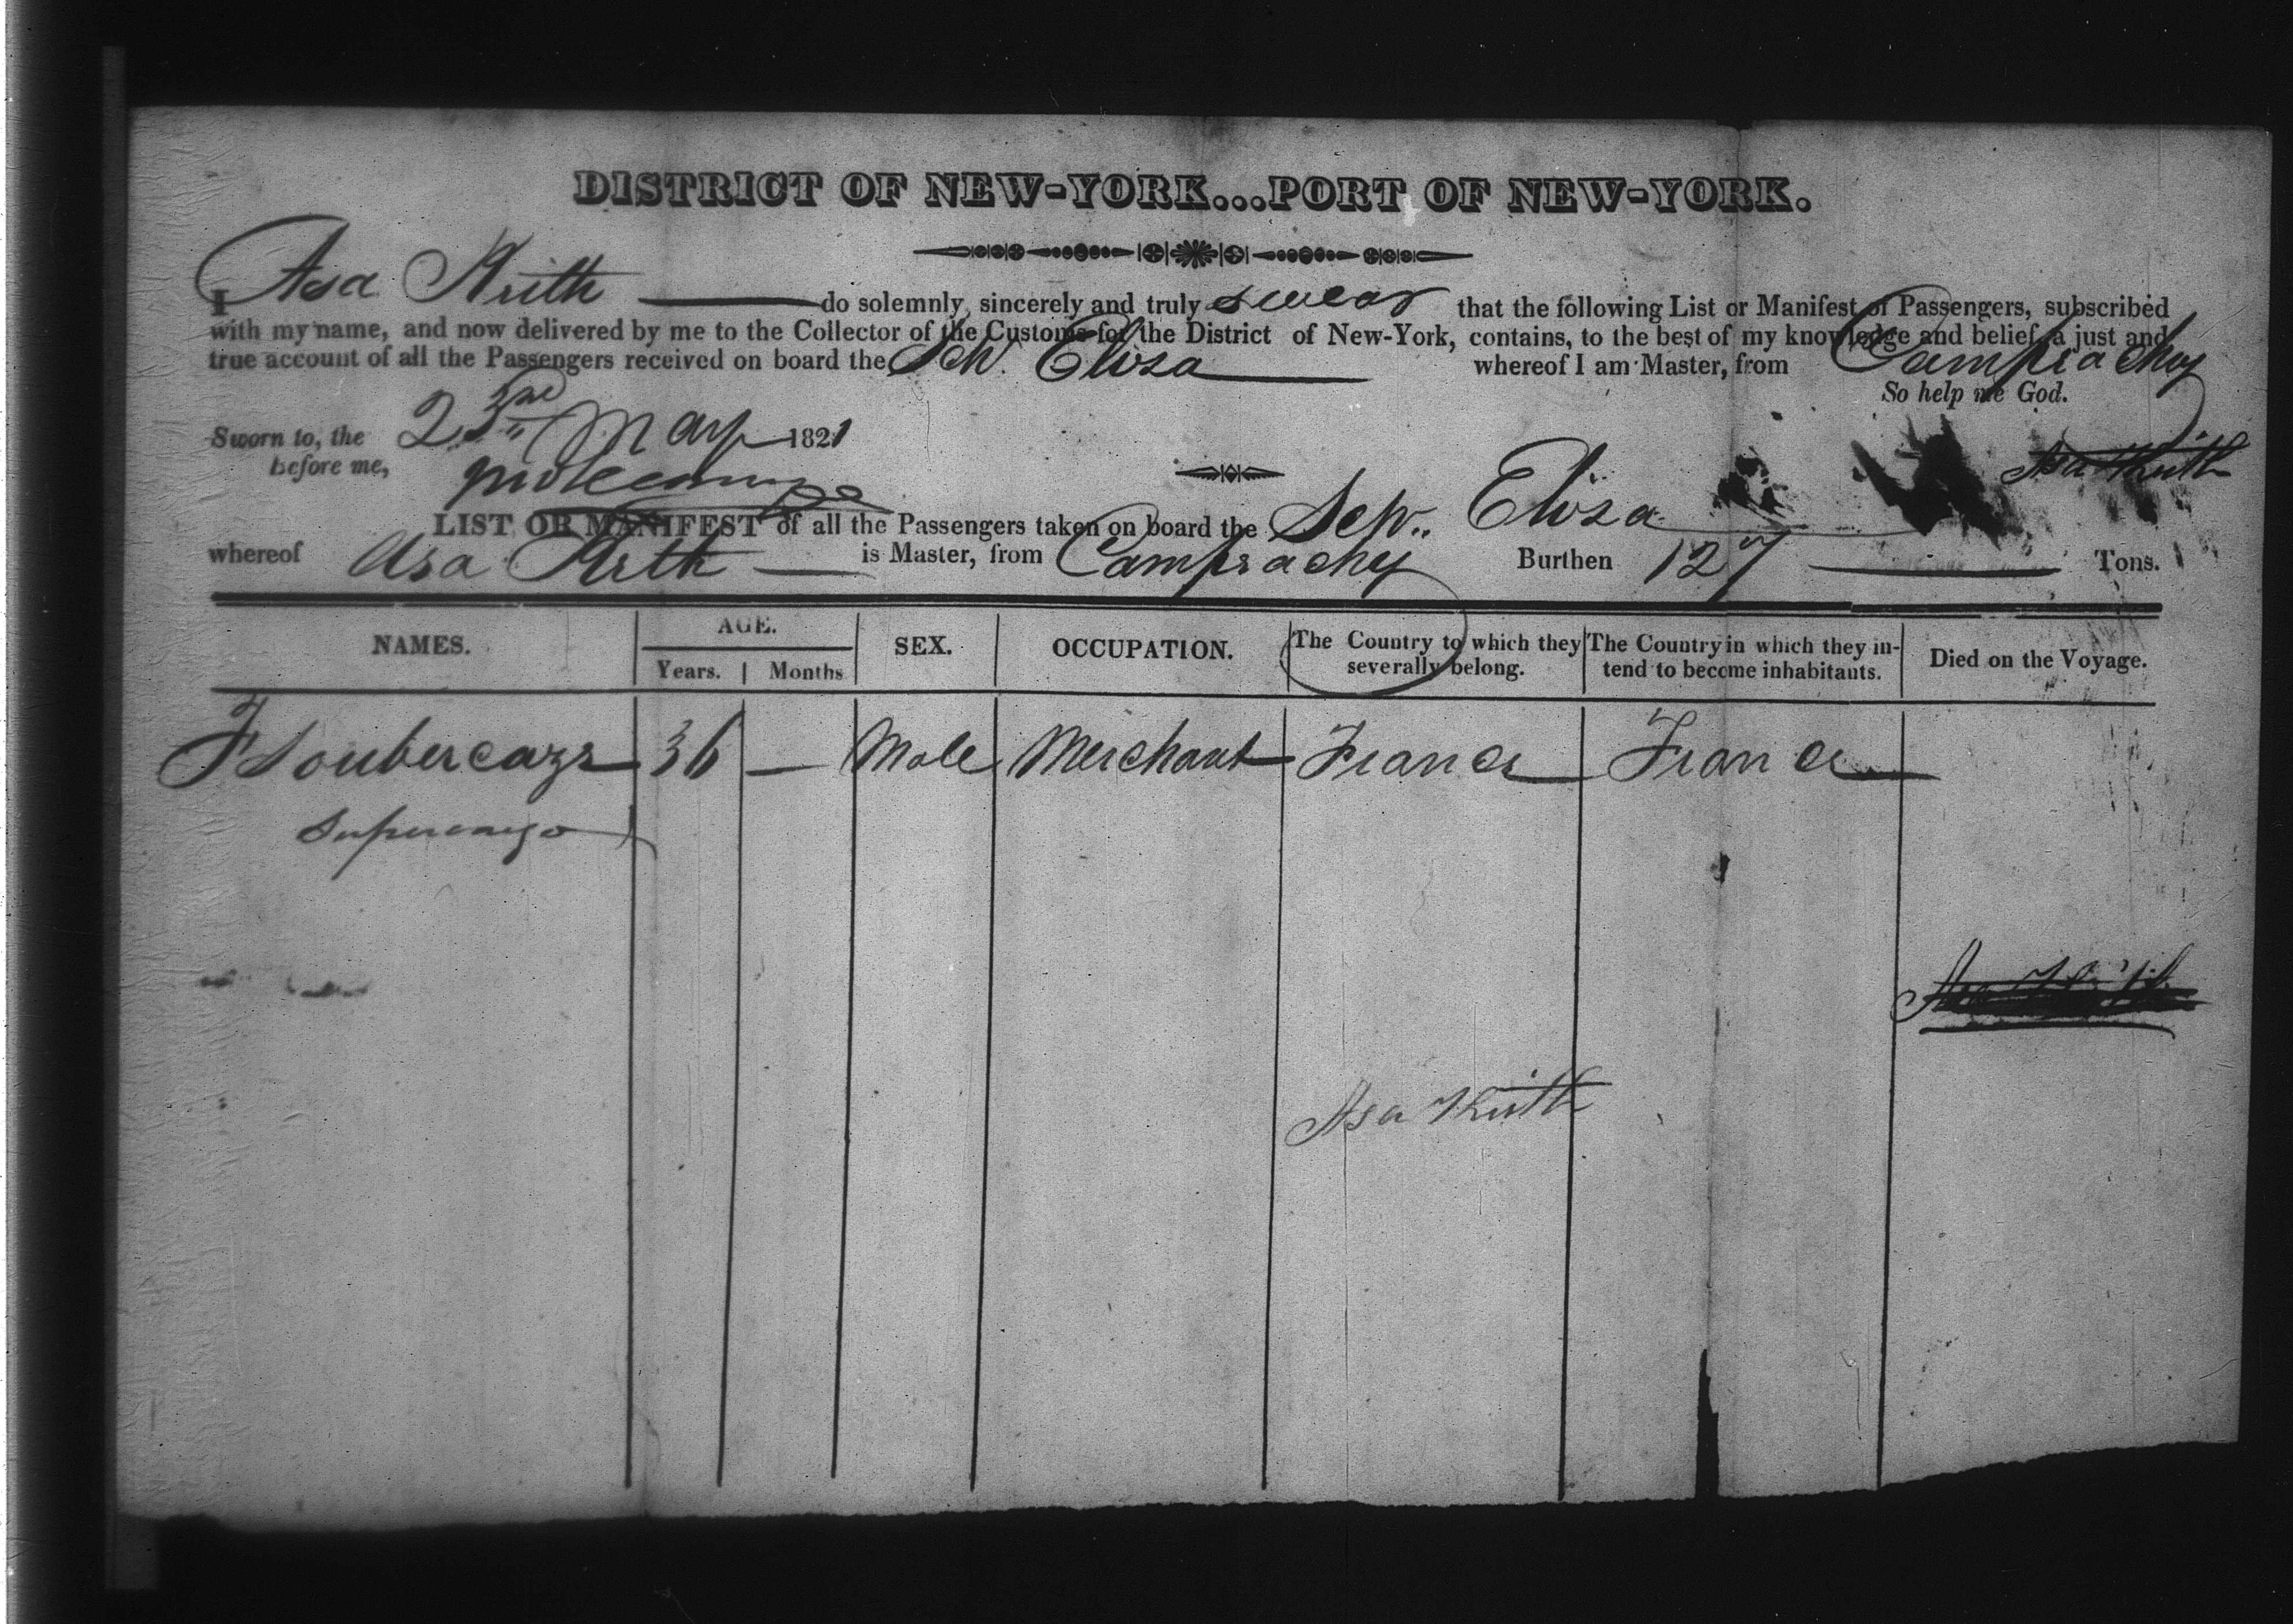 DISTRICT OF NEW-YORK...PORT OF NEW-YORK.
I Asa Keith do solemnly, sincerely and truly swear that the following List or Manifest of Passengers, subscribed
with my name, and now delivered by me to the Collector of the Customs for the District of New-York, contains, to the best of my knowledge and belief, a just and
true account of all the Passengers received on board the Sch. Eliza whereof I am Master, from Campeachy
So help me God.
Sworn to, the 23rd May 1821
before me,
Asa Keith
LIST OR MANIFEST of all the Passengers taken on board the Sch. Eliza
whereof Asa Keith is Master, from Campeachy Burthen 127 Tons.
NAMES. AGE. SEX. OCCUPATION. The Country to which they severally belong. The Country in which they intend to become inhabitants. Died on the Voyage.
Years. Months
36 — Male Merchant France France
Supercargo
Asa Keith
Asa Keith